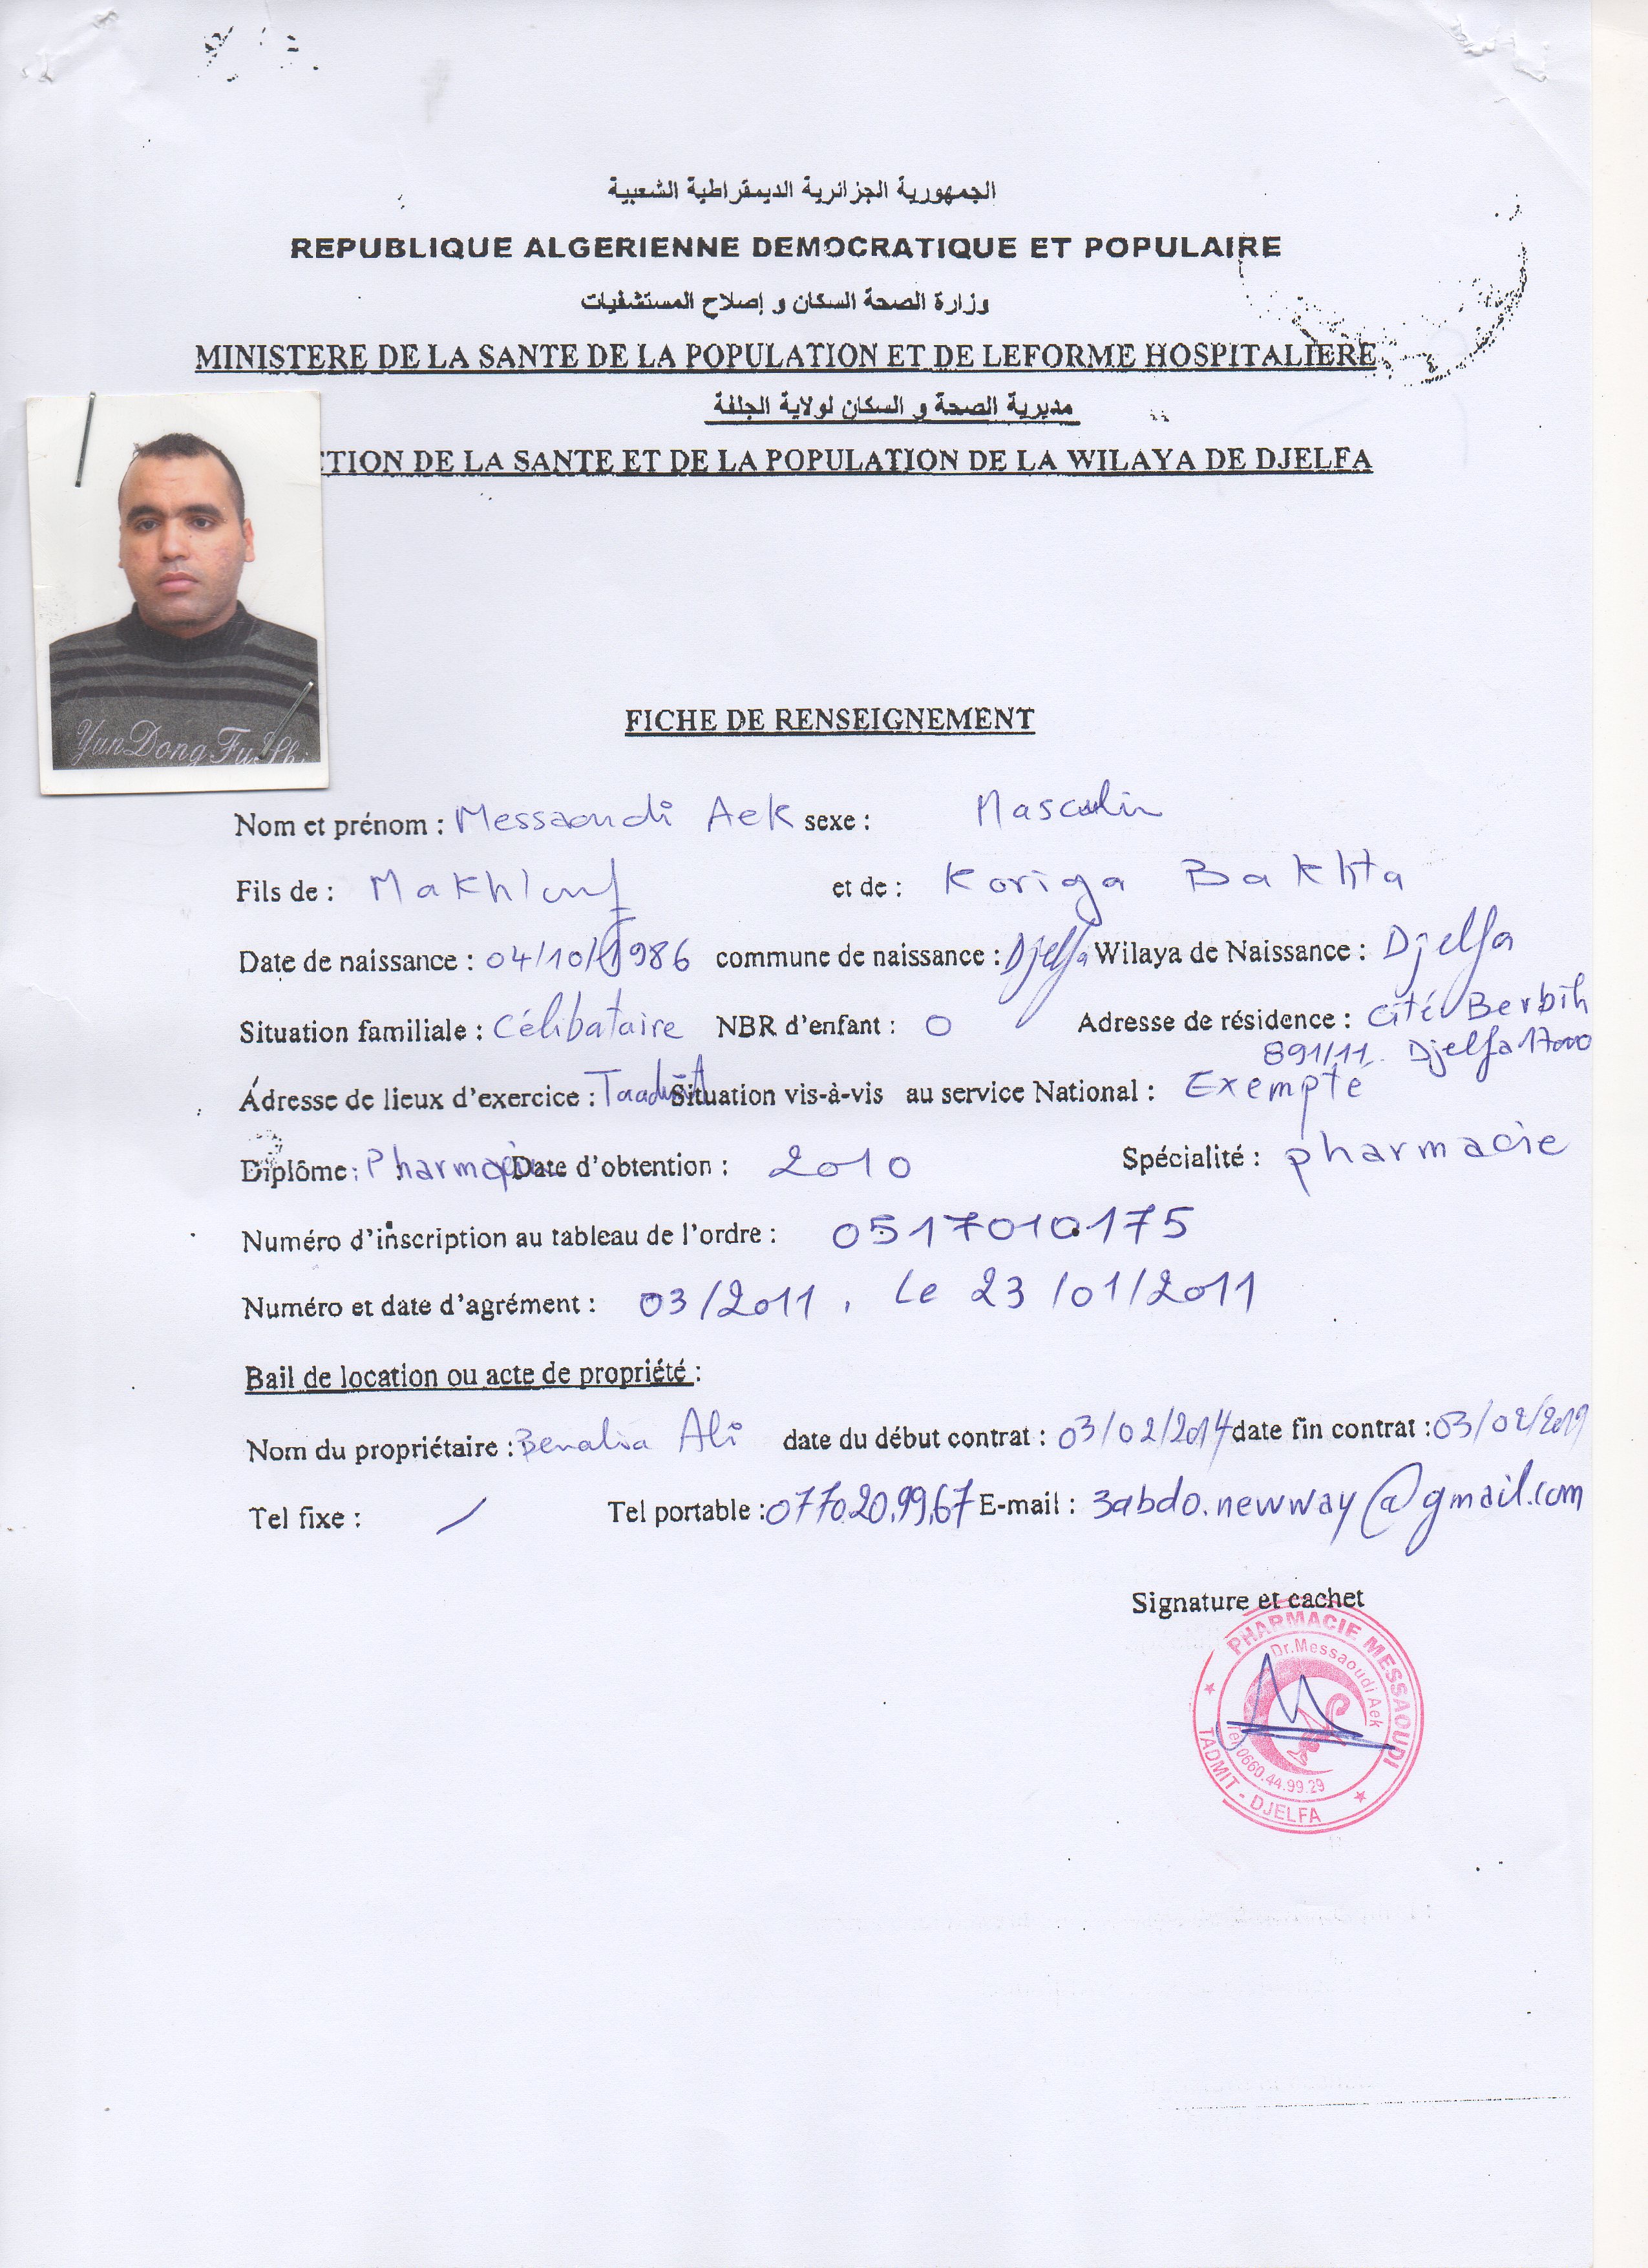 الجمهورية الجزائرية الديمقراطية الشعبية
REPUBLIQUE ALGERIENNE DEMOCRATIQUE ET POPULAIRE
وزارة الصحة السكان و إصلاح المستشفيات
MINISTERE DE LA SANTE DE LA POPULATION ET DE LEFORME HOSPITALIERE
مديرية الصحة و السكان لولاية الجلفة
CTION DE LA SANTE ET DE LA POPULATION DE LA WILAYA DE DJELFA
YunDongFuShi
FICHE DE RENSEIGNEMENT
Nom et prénom : Messaoudi Aek sexe : Masculin
Fils de : Makhlouf et de : Koriga Bakhta
Date de naissance : 04/10/1986 commune de naissance : Djelfa Wilaya de Naissance : Djelfa
Situation familiale : Célibataire NBR d'enfant : 0 Adresse de résidence : Cité Berbih
891/11. Djelfa 17000
Adresse de lieux d'exercice : Taadmit Situation vis-à-vis au service National : Exempté
Diplôme : Pharmacie Date d'obtention : 2010 Spécialité : pharmacie
Numéro d'inscription au tableau de l'ordre : 0517010175
Numéro et date d'agrément : 03/2011, le 23/01/2011
Bail de location ou acte de propriété :
Nom du propriétaire : Benalia Ali date du début contrat : 03/02/2014 date fin contrat : 03/02/2019
Tel fixe : / Tel portable : 0770.20.99.67 E-mail : 3abdo.newway@gmail.com
Signature et cachet
PHARMACIE MESSAOUDI
Dr.Messaoudi Aek
Tel 0660.44.99.29
TADMIT - DJELFA